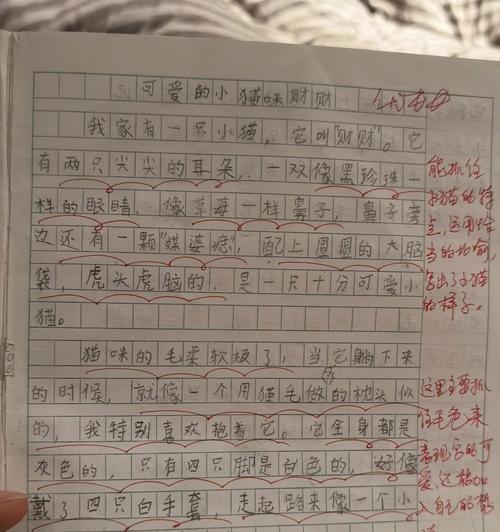 可爱的小猫咪财财
我家有一只小猫，它叫“财财”。它
有两只尖尖的耳朵，一双像黑珍珠一
样的眼睛，像草莓一样鼻子，鼻子旁
边还有一颗“媒婆痣”，配上圆圆的大脑
袋，虎头虎脑的，是一只十分可爱小
猫。
猫咪的毛柔软极了，当它躺下来
的时候，就像一个用猫毛做成的枕头似
的，我特别喜欢抱着它。它全身都是
灰色的，只有四只脚是白色的，好像
戴了四只白手套，走起路来像一个小
能抓住
小猫的特
点，运用恰
当的比喻，
写出了小猫
的样子。
这里主要抓
住毛色来
表现它的可
爱，还能加
入自己的想